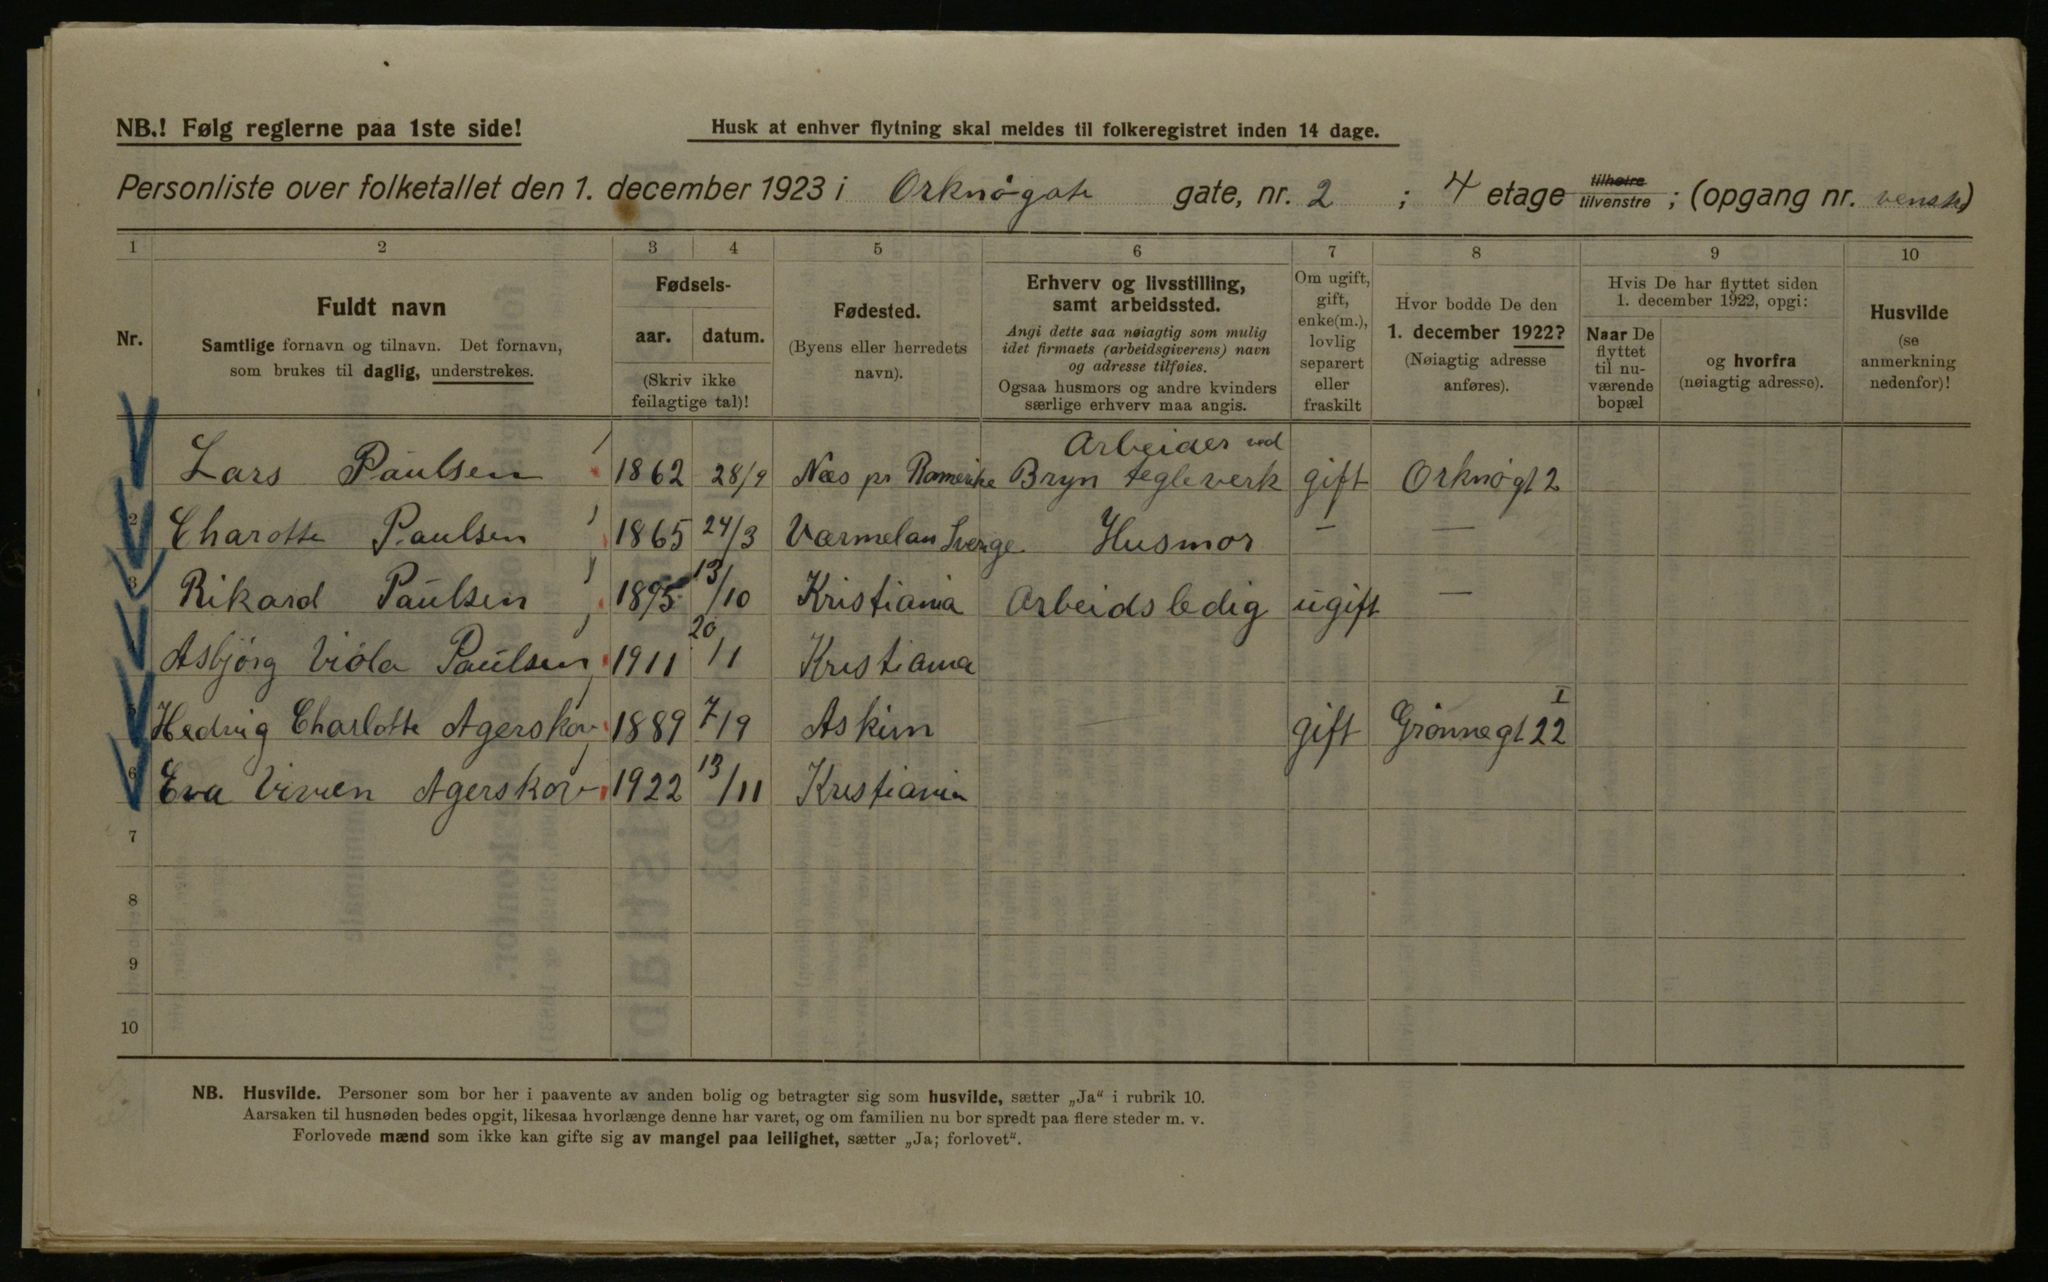 NB.! Følg reglerne paa 1ste side!
Husk at enhver flytning skal meldes til folkeregistret inden 14 dage.
Personliste over folketallet den 1. december 1923 i Orknøgate gate, nr. 2 ; 4 etage tilhøire tilvenstre ; (opgang nr. venstre)
1 2 3 4 5 6 7 8 9 10
Nr.
Fuldt navn
Samtlige fornavn og tilnavn. Det fornavn,
som brukes til daglig, understrekes.
Fødsels-
aar. datum.
(Skriv ikke
feilagtige tal)!
Fødested.
(Byens eller herredets
navn).
Erhverv og livsstilling,
samt arbeidssted.
Angi dette saa nøiagtig som mulig
idet firmaets (arbeidsgiverens) navn
og adresse tilføies.
Ogsaa husmors og andre kvinders
særlige erhverv maa angis.
Om ugift,
gift,
enke(m.),
lovlig
separert
eller
fraskilt
Hvor bodde De den
1. december 1922?
(Nøiagtig adresse
anføres).
Hvis De har flyttet siden
1. december 1922, opgi:
Naar De
flyttet
til nu-
værende
bopæl
og hvorfra
(nøiagtig adresse).
Husvilde
(se
anmerkning
nedenfor)!
Lars Paulsen 1862 28/9 Næs pr Romerike Arbeider ved
Bryn tegleverk gift Orknøgt 2
2 Charotte Paulsen 1865 24/3 Værmelan Sverge Husmor — —
3 Rikard Paulsen 1895 13/10 Kristiania Arbeidsledig ugift —
Asbjörg Viola Paulsen 1911 20/1 Kristiania
5 Hedvig Charlotte Agerskov 1889 7/9 Askim — gift Grønnegt 22 I
6 Eva Vivien Agerskov 1922 13/11 Kristiania
7
8
9
10
NB. Husvilde. Personer som bor her i paavente av anden bolig og betragter sig som husvilde, sætter „Ja“ i rubrik 10.
Aarsaken til husnøden bedes opgit, likesaa hvorlænge denne har varet, og om familien nu bor spredt paa flere steder m. v.
Forlovede mænd som ikke kan gifte sig av mangel paa leilighet, sætter „Ja; forlovet“.